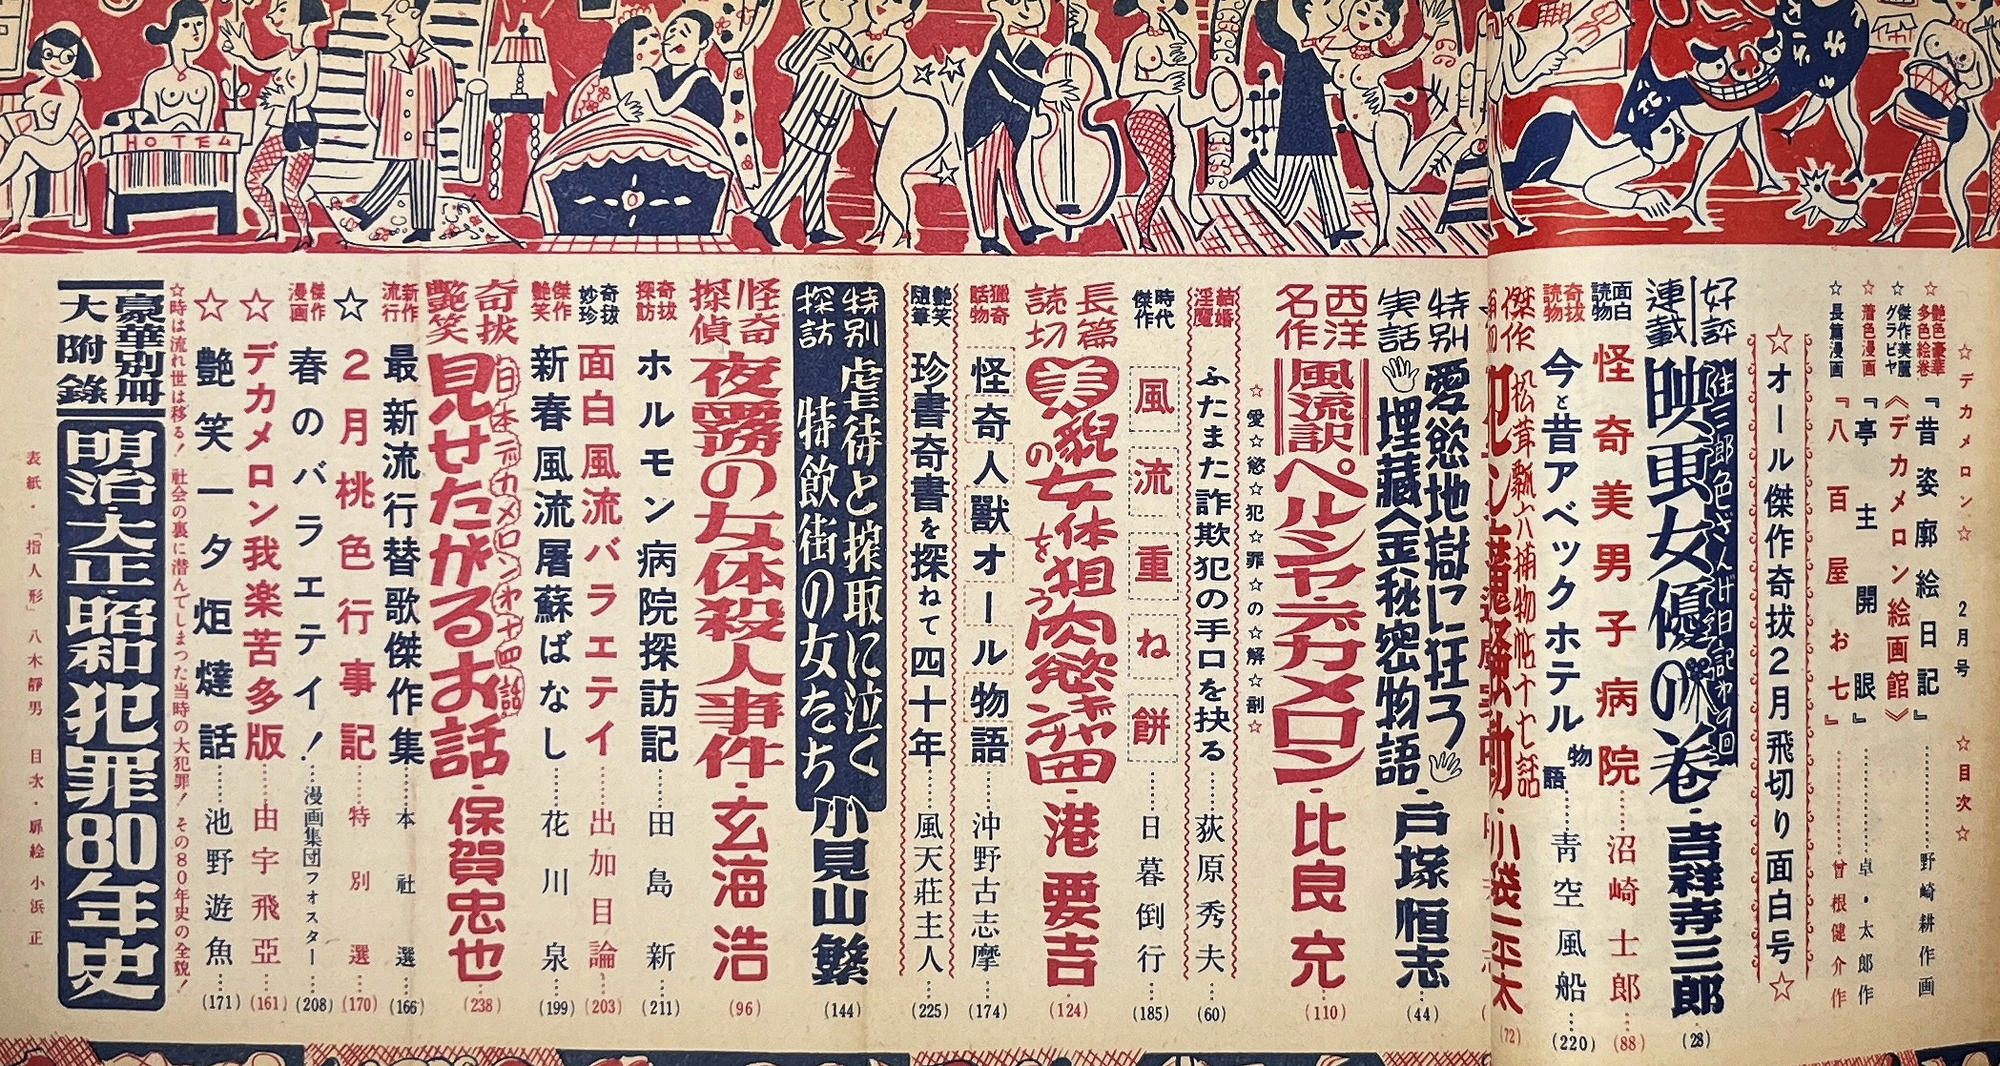 ☆デカメロン☆ 2月号 ☆目次☆
☆艶色豪華多色絵巻 『昔姿廓絵日記』……野崎耕作画
☆傑作美麗グラビヤ 《デカメロン絵画館》
☆着色漫画 『亭主開眼』……卓・太郎作
☆長篇漫画 『八百屋お七』……曾根健介作
☆オール傑作奇抜2月飛切り面白号☆
好評連載 色ざんげ日記
映画女優の巻・吉祥寺三郎 (28)
面白読物 怪奇美男子病院……沼崎士郎 (88)
奇抜読物 今と昔アベックホテル物語……青空風船 (220)
傑作 松茸 六捕物帖十七話
騒動・小 平太 (72)
特別実話 愛慾地獄に狂う
埋蔵金秘密物語・戸塚恒志 (44)
西洋名作 風流訳 ペルシャ・デカメロン・比良充 (110)
☆愛☆慾☆犯☆罪☆の☆解☆剖☆
結婚淫魔 ふたまた詐欺犯の手口を抉る……荻原秀夫 (60)
時代傑作 風流重ね餅……日暮倒行 (185)
長篇読切 美貌の女体を狙う肉慾ギャング・港要吉 (124)
獵奇話物 怪奇人獸オール物語……沖野古志摩 (174)
艶笑随筆 珍書奇書を探ねて四十年……風天莊主人 (225)
特別探訪 虐待と搾取に泣く
特飲街の女たち 小見山繁 (144)
怪奇探偵 夜霧の女体殺人事件・玄海浩 (96)
奇抜探訪 ホルモン病院探訪記……田島新 (211)
奇抜妙珍 面白風流バラエテイ……出加目論 (203)
傑作艶笑 新春風流屠蘇ばなし……花川泉 (199)
奇抜艶笑 日本デカメロン 十四話
見せたがるお話・保賀忠也 (238)
新作流行 最新流行替歌傑作集……本社選 (166)
☆2月桃色行事記……特別選 (170)
傑作漫画 春のバラエテイ!……漫画集団フォスター (208)
☆デカメロン我楽苦多版……由宇飛亞 (161)
☆艶笑一夕炬燵話……池野遊魚 (171)
☆時は流れ世は移る! 社会の裏に潜んでしまった当時の大犯罪! その80年史の全貌!
豪華別冊大附錄 明治・大正・昭和犯罪80年史
表紙・「指人形」 八木靜男 目次・扉絵 小浜正
HOTEL